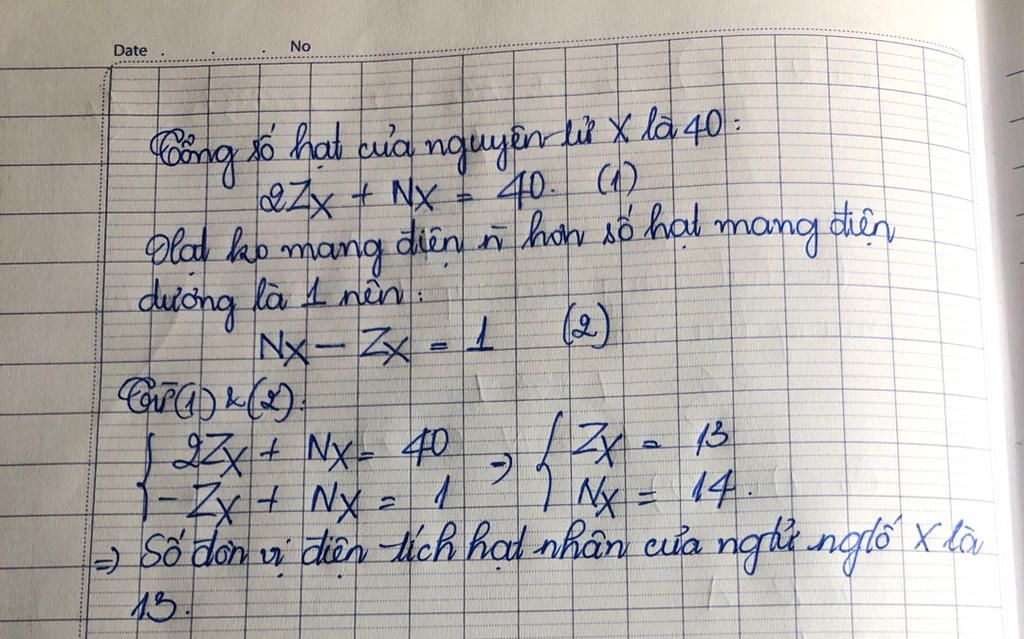 Date . . . No
Tổng số hạt của nguyên tử X là 40:
2Zx + Nx = 40. (1)
Hạt ko mang điện n̄ hơn số hạt mang điện
dương là 1 nên:
Nx – Zx = 1 (2)
Từ (1) & (2):
{ 2Zx + Nx = 40 => { Zx = 13
{ -Zx + Nx = 1 { Nx = 14.
=> Số đơn vị điện tích hạt nhân của ngtử ngtố X là
13.